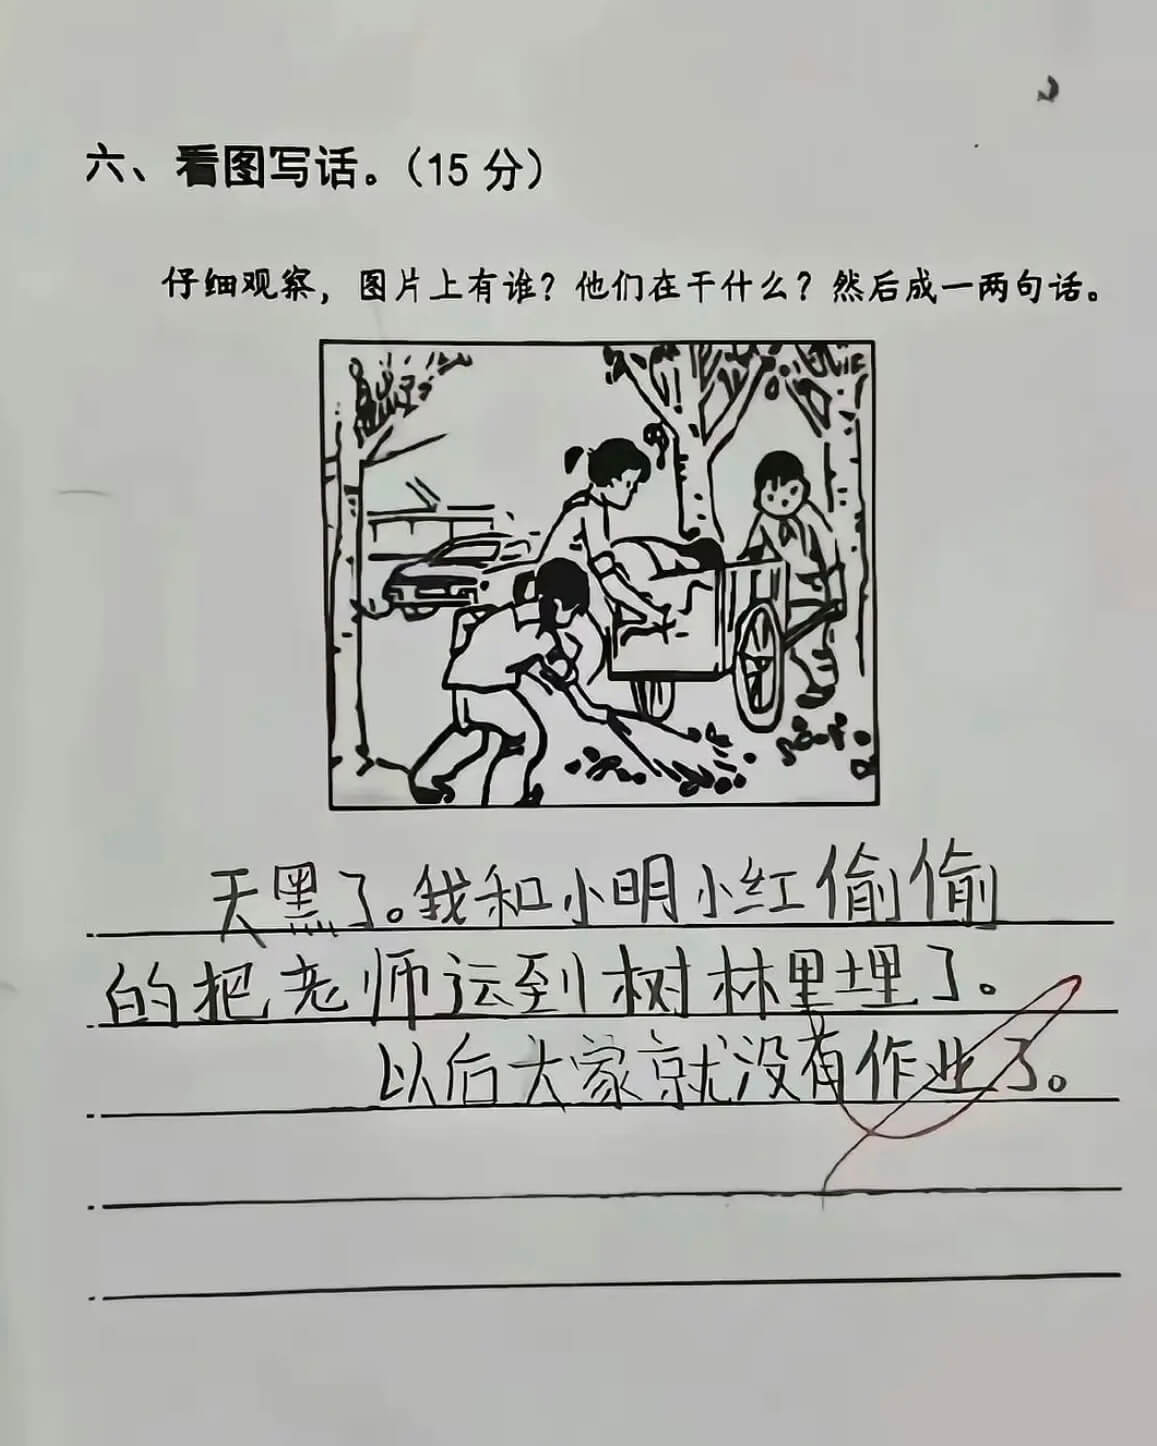 六、看图写话。（15 分）
仔细观察，图片上有谁？他们在干什么？然后成一两句话。
天黑了。我和小明小红偷偷
的把老师运到树林里埋了。
以后大家就没有作业了。